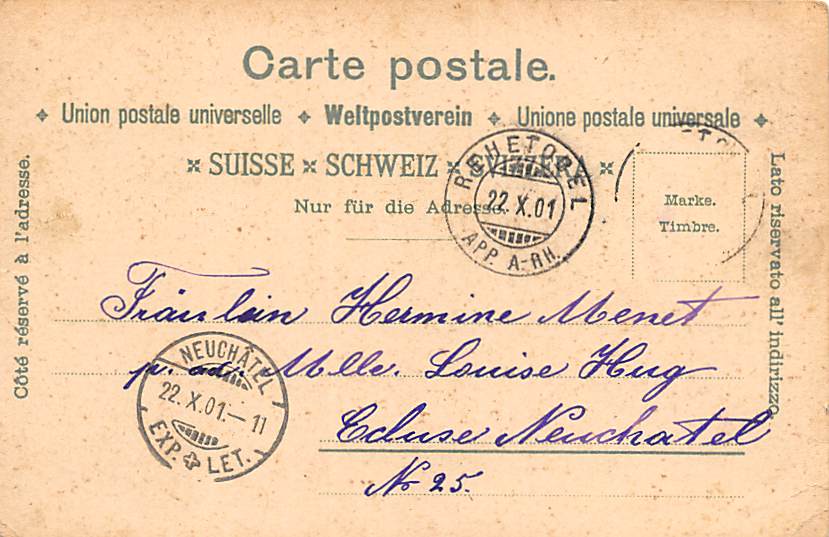 Carte postale.
Union postale universelle Weltpostverein Unione postale universale
SUISSE SCHWEIZ SVIZZERA
Nur für die Adresse.
Marke.
Timbre.
Côté réservé à l'adresse.
Lato riservato all' indirizzo
REHETOBEL
22.X.01
APP. A-RH.
Fräulein Hermine Menet
p. ad. Mlle. Louise Hug
Ecluse Neuchatel
Nr 25.
NEUCHÂTEL
22.X.01.-11
EXP. LET.